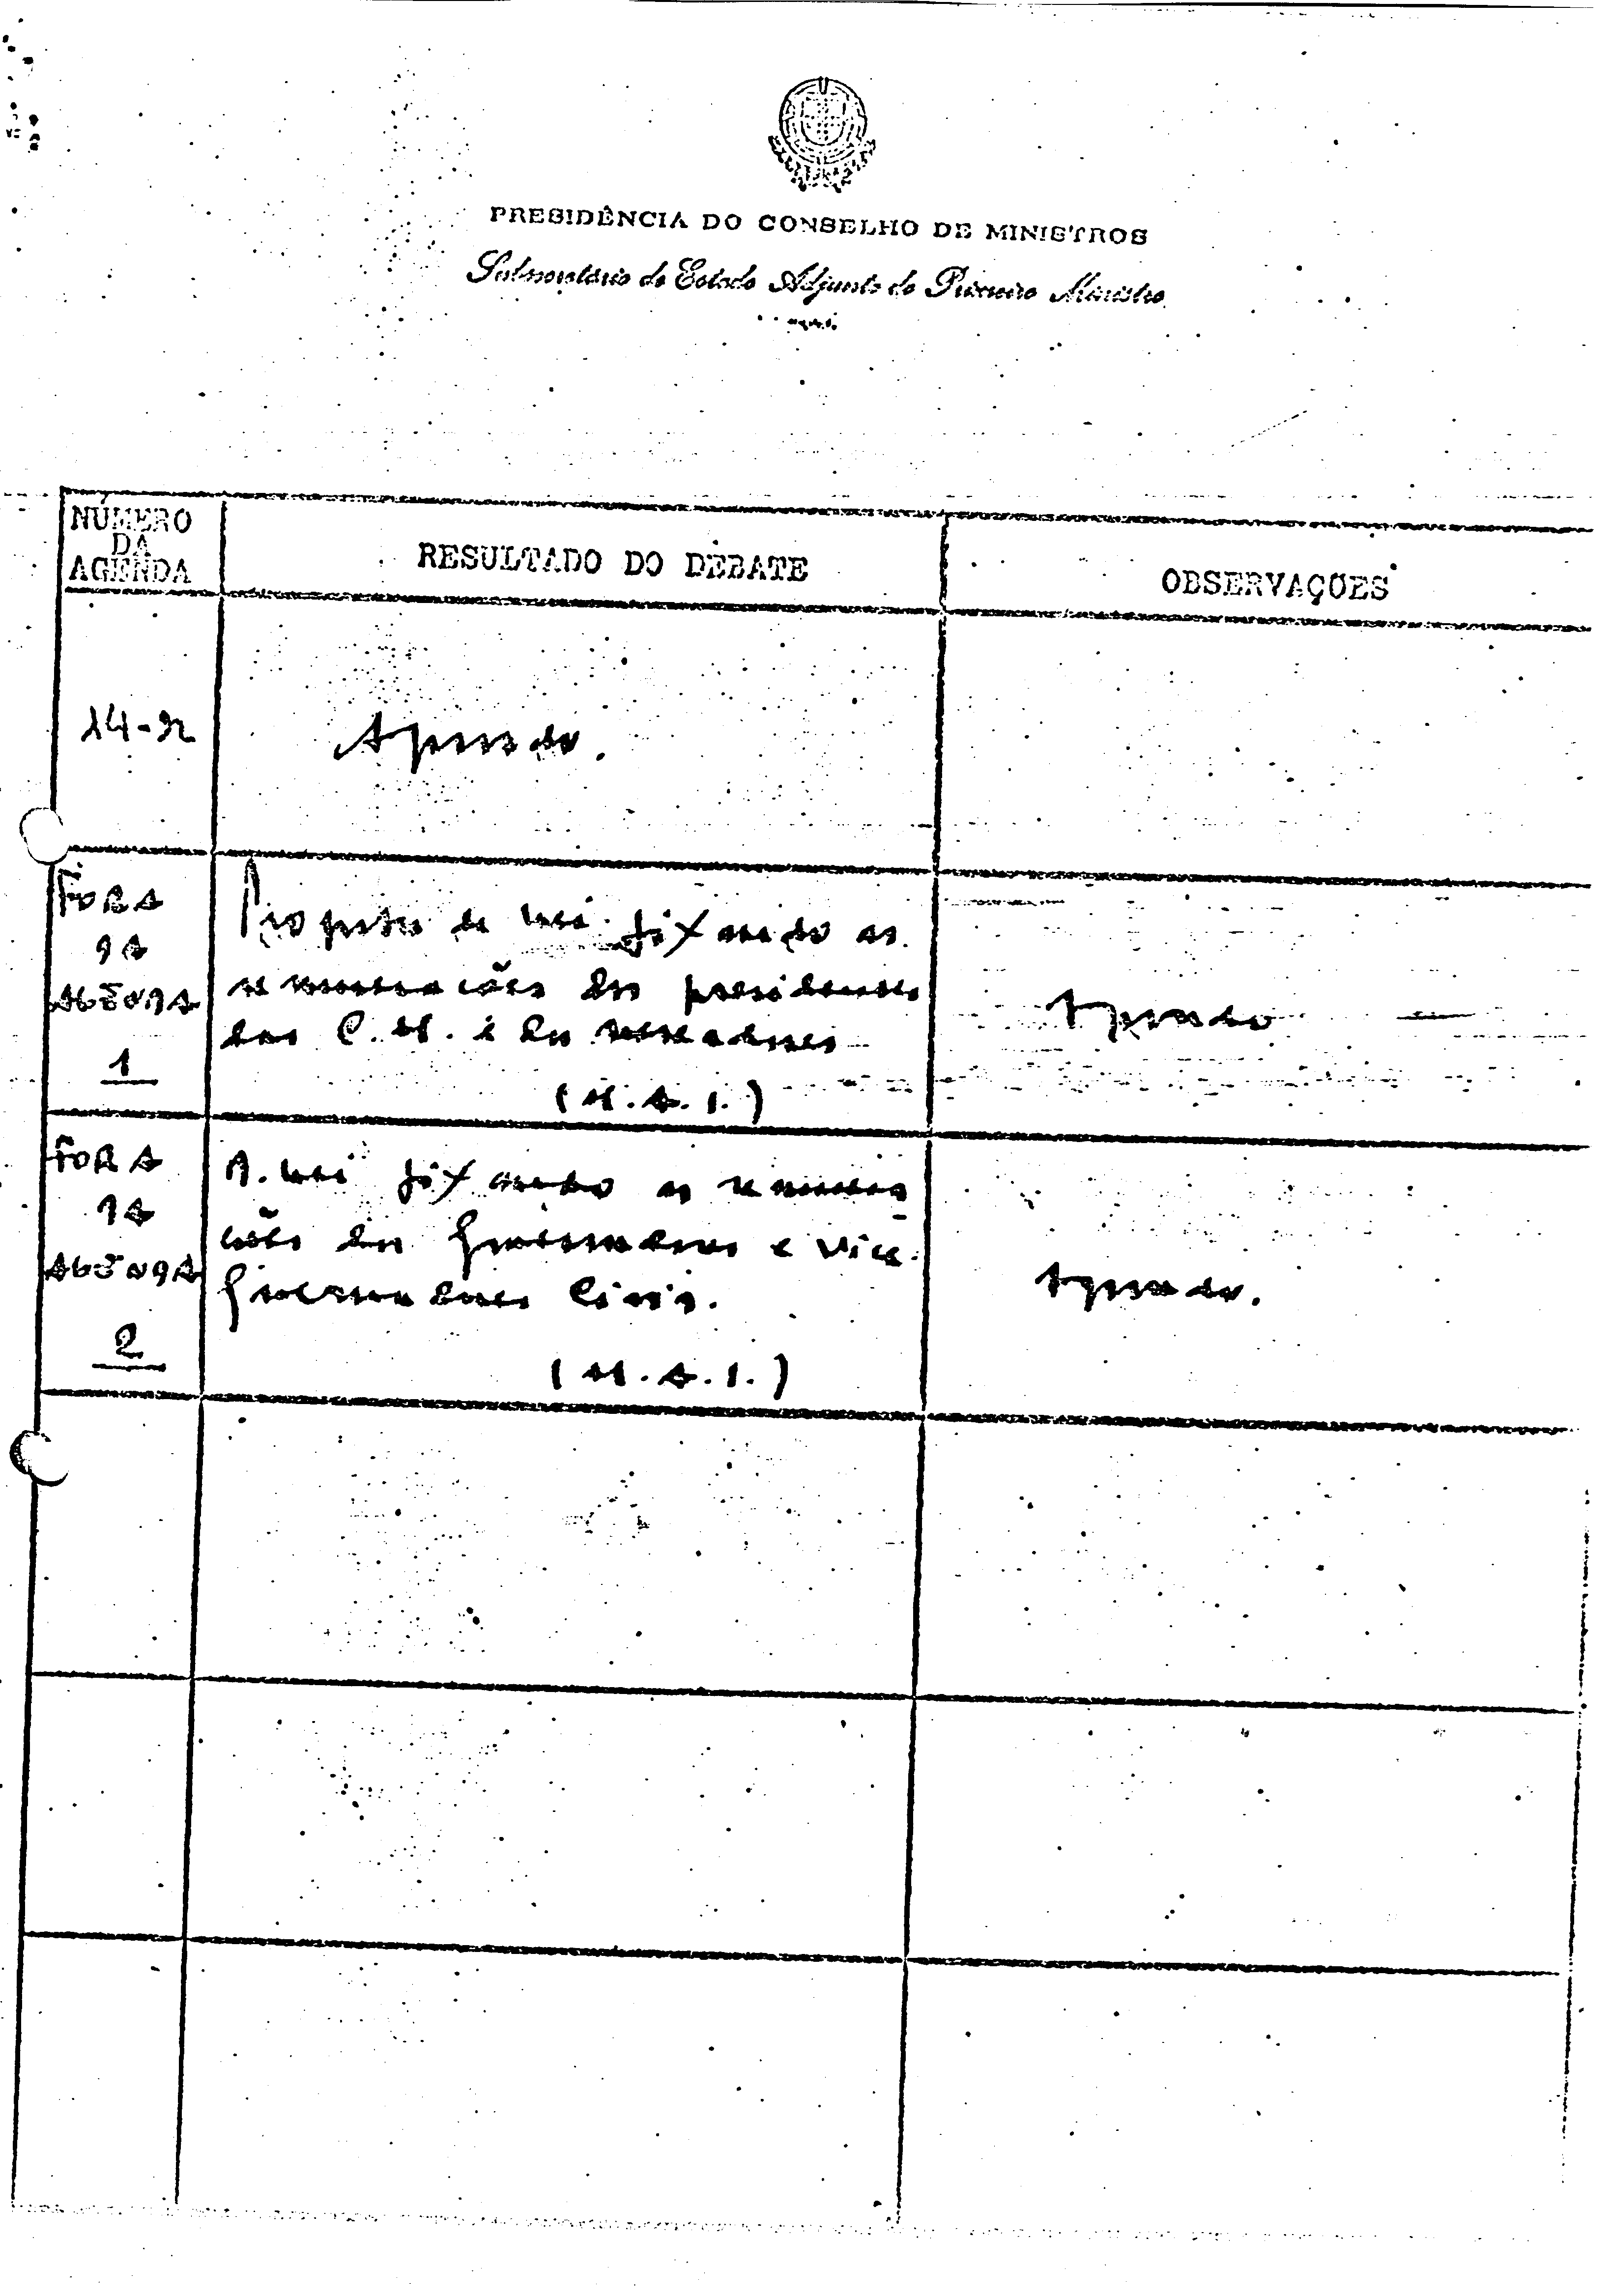 PRESIDÊNCIA DO CONSELHO DE MINISTROS
Subsecretário de Estado Adjunto do Primeiro Ministro
NÚMERO
DA
AGENDA
RESULTADO DO DEBATE
OBSERVAÇÕES
14-92
Aprovado.
FORA
DA
AGENDA
1
Proposta de Lei fixando as
remunerações dos presidentes
das C.M. e dos vereadores
(M.A.I.)
Aprovado
FORA
DA
AGENDA
2
P. Lei fixando as remunera
ções dos Governadores e Vice-
Governadores Civis.
(M.A.I.)
Aprovado.